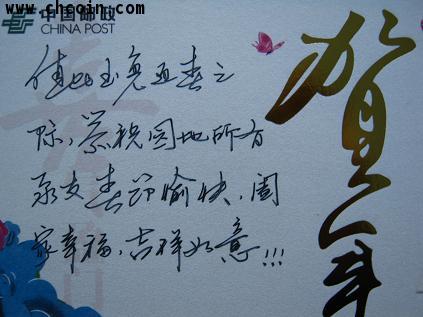 www.chcoin.com
中国邮政
CHINA POST
值此玉兔迎春之
际,恭祝园地所有
泉友春节愉快,阖
家幸福,吉祥如意!!!
贺年